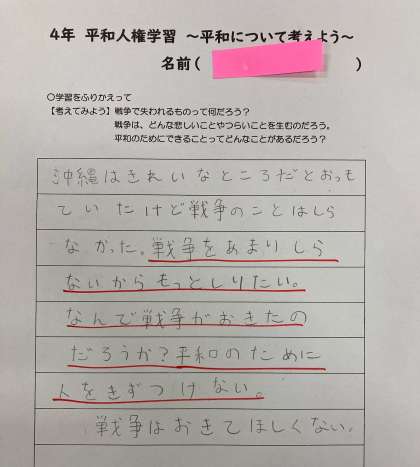 4年 平和人権学習 ～平和について考えよう～
名前( )
○学習をふりかえって
【考えてみよう】戦争で失われるものって何だろう？
戦争は、どんな悲しいことやつらいことを生むのだろう。
平和のためにできることってどんなことがあるだろう？
沖縄はきれいなところだとおっも
ていたけど戦争のことはしら
なかった。戦争をあまりしら
ないからもっとしりたい。
なんで戦争がおきたの
だろうか？平和のために
人をきずつけない。
戦争はおきてほしくない。